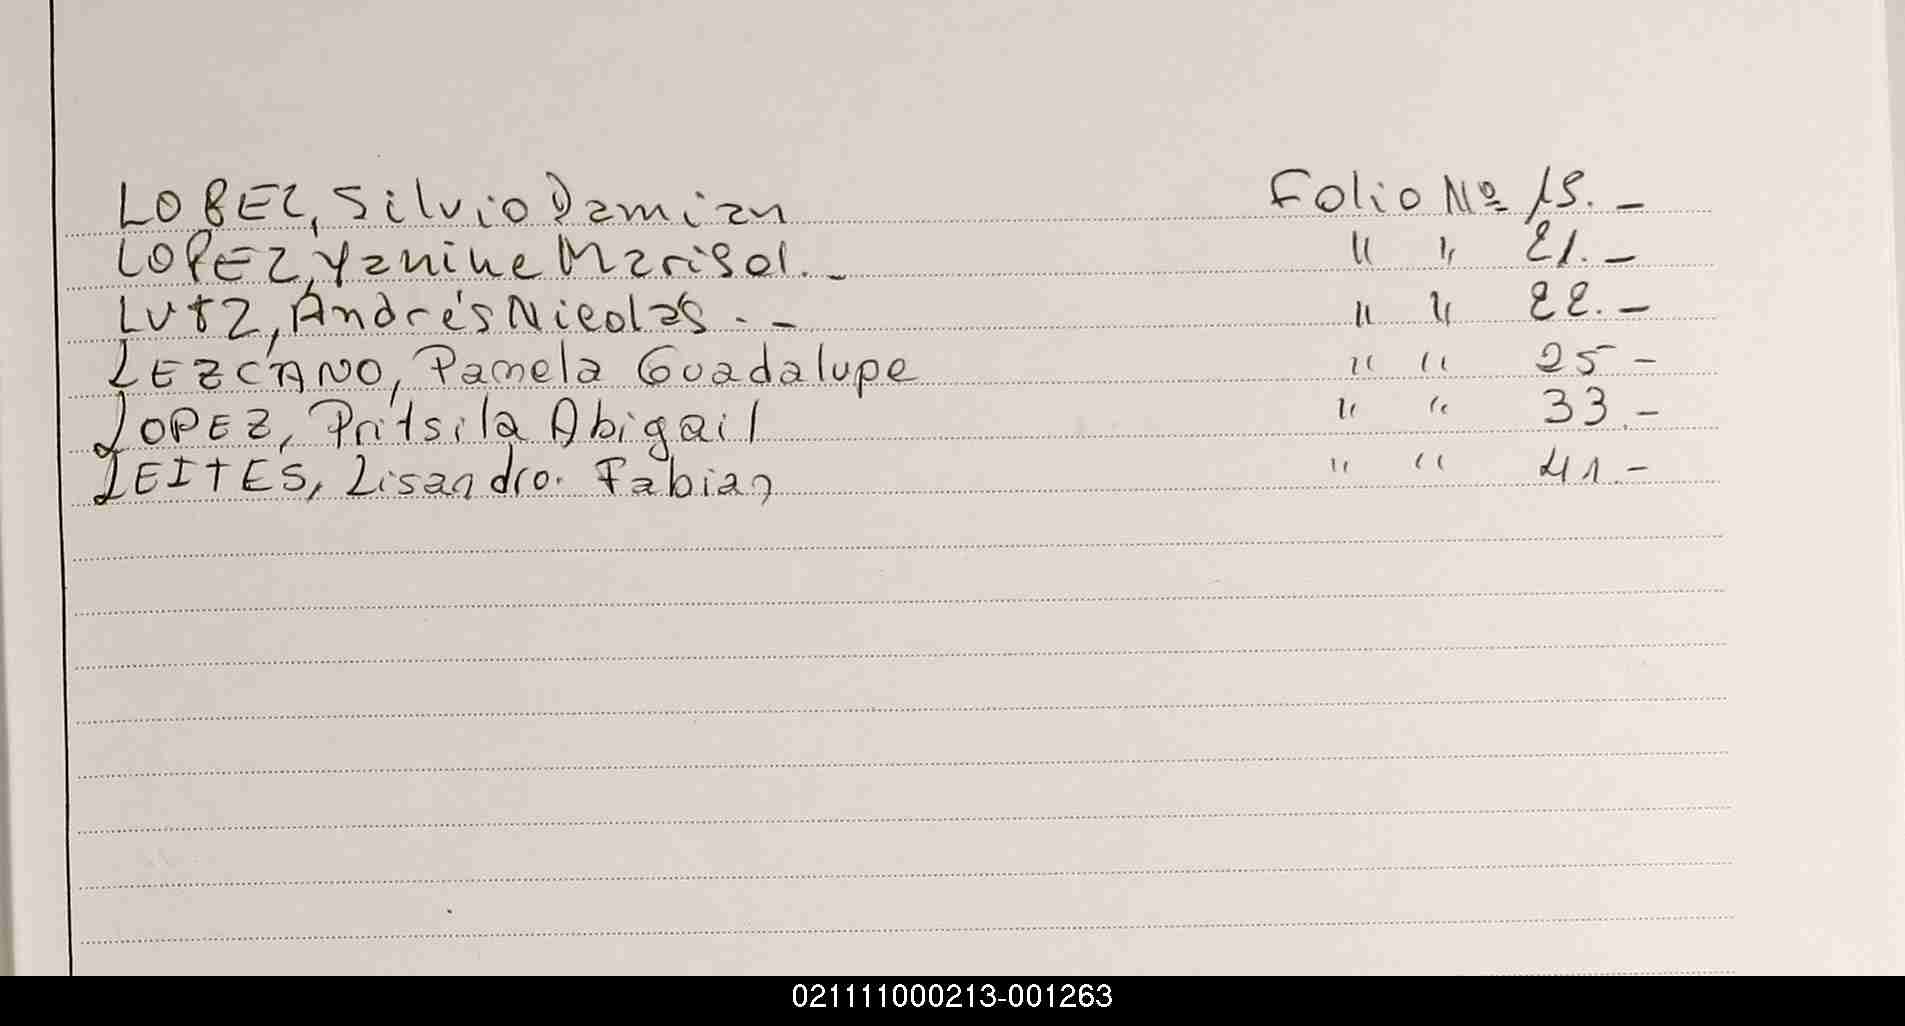 LOBEZ, Silvio Damian Folio Nº 15. -
LOPEZ, Yanine Marisol. - " " 21. -
LUTZ, Andrés Nicolás . - " " 22. -
LEZCANO, Pamela Guadalupe " " 25 -
LOPEZ, Pritsila Abigail " " 33. -
LEITES, Lisandro. Fabian " " 41. -
021111000213-001263